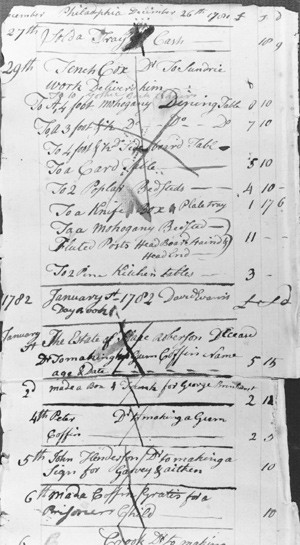 December Philadelphia December 26th 1781 £ S d
27th Cash 10 9
29th Tench Cox Dr To Sundrie
work Delivered him
To A 4 foot mohogany Dining Table 8 10
To a 3 foot Do Do 7 10
To 4 foot Sideboard Table
To a Card Table 5 10
To 2 Poplar Bedsteds 4 10 -
To a Knife Box & Plate tray 1 17 6
To a mohogany Bedsted
Fluted Posts Head Board
Head End 11 -
To 2 Pine Kitchen tables 3 -
1782 January 1st 1782 David Evans £ s d
Day Book
January
1st The Estate of Asberson Deceasd
Dr To making a Gum Coffin Name
age & Date 5 15
2d made a Box & Trunk for George 2 12
4th Peter Dr to making a Gum
Coffin 2 5
5th John Henderson Dr to making a
Sign for Garvey & aitken 10
6th made a Coffin Gratis for a
Prisoners Child 10
Dr to making